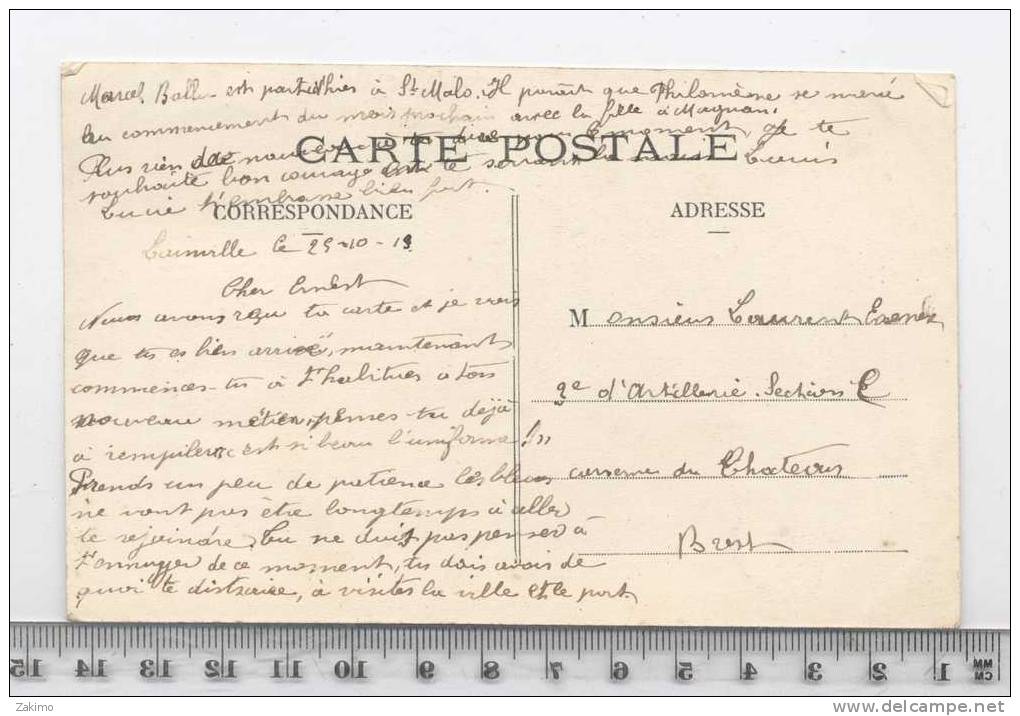 Marcel Ball est parti hier à St Malo. Il parait que Philomène se marie
au commencement du mois prochain avec la fille à Magnan.
Plus rien de nouveau à te dire pour le moment, je te
souhaite bon courage en te serrant la main. Louis
Lucie t'embrasse bien fort.
CARTE POSTALE
CORRESPONDANCE
le 25-10-13
Cher Ernest
Nous avons reçu ta carte et je vois
que tu es bien arrivé, maintenant
commences-tu à t'habituer a ton
nouveau métier, penses-tu déjà
à rempiler c'est si beau l'uniforme !!»
Prends un peu de patience les bleus
ne vont pas être longtemps à aller
te rejoindre. Tu ne dois pas penser à
t'ennuyer de ce moment, tu dois avoir de
quoi te distraire, à visiter la ville et le port.
ADRESSE
Monsieur Laurent
2e d'Artillerie. Section E
caserne du Chateau
Brest
15 14 13 12 11 10 9 8 7 6 5 4 3 2 1 MM
CM
Zakimo
www.delcampe.net